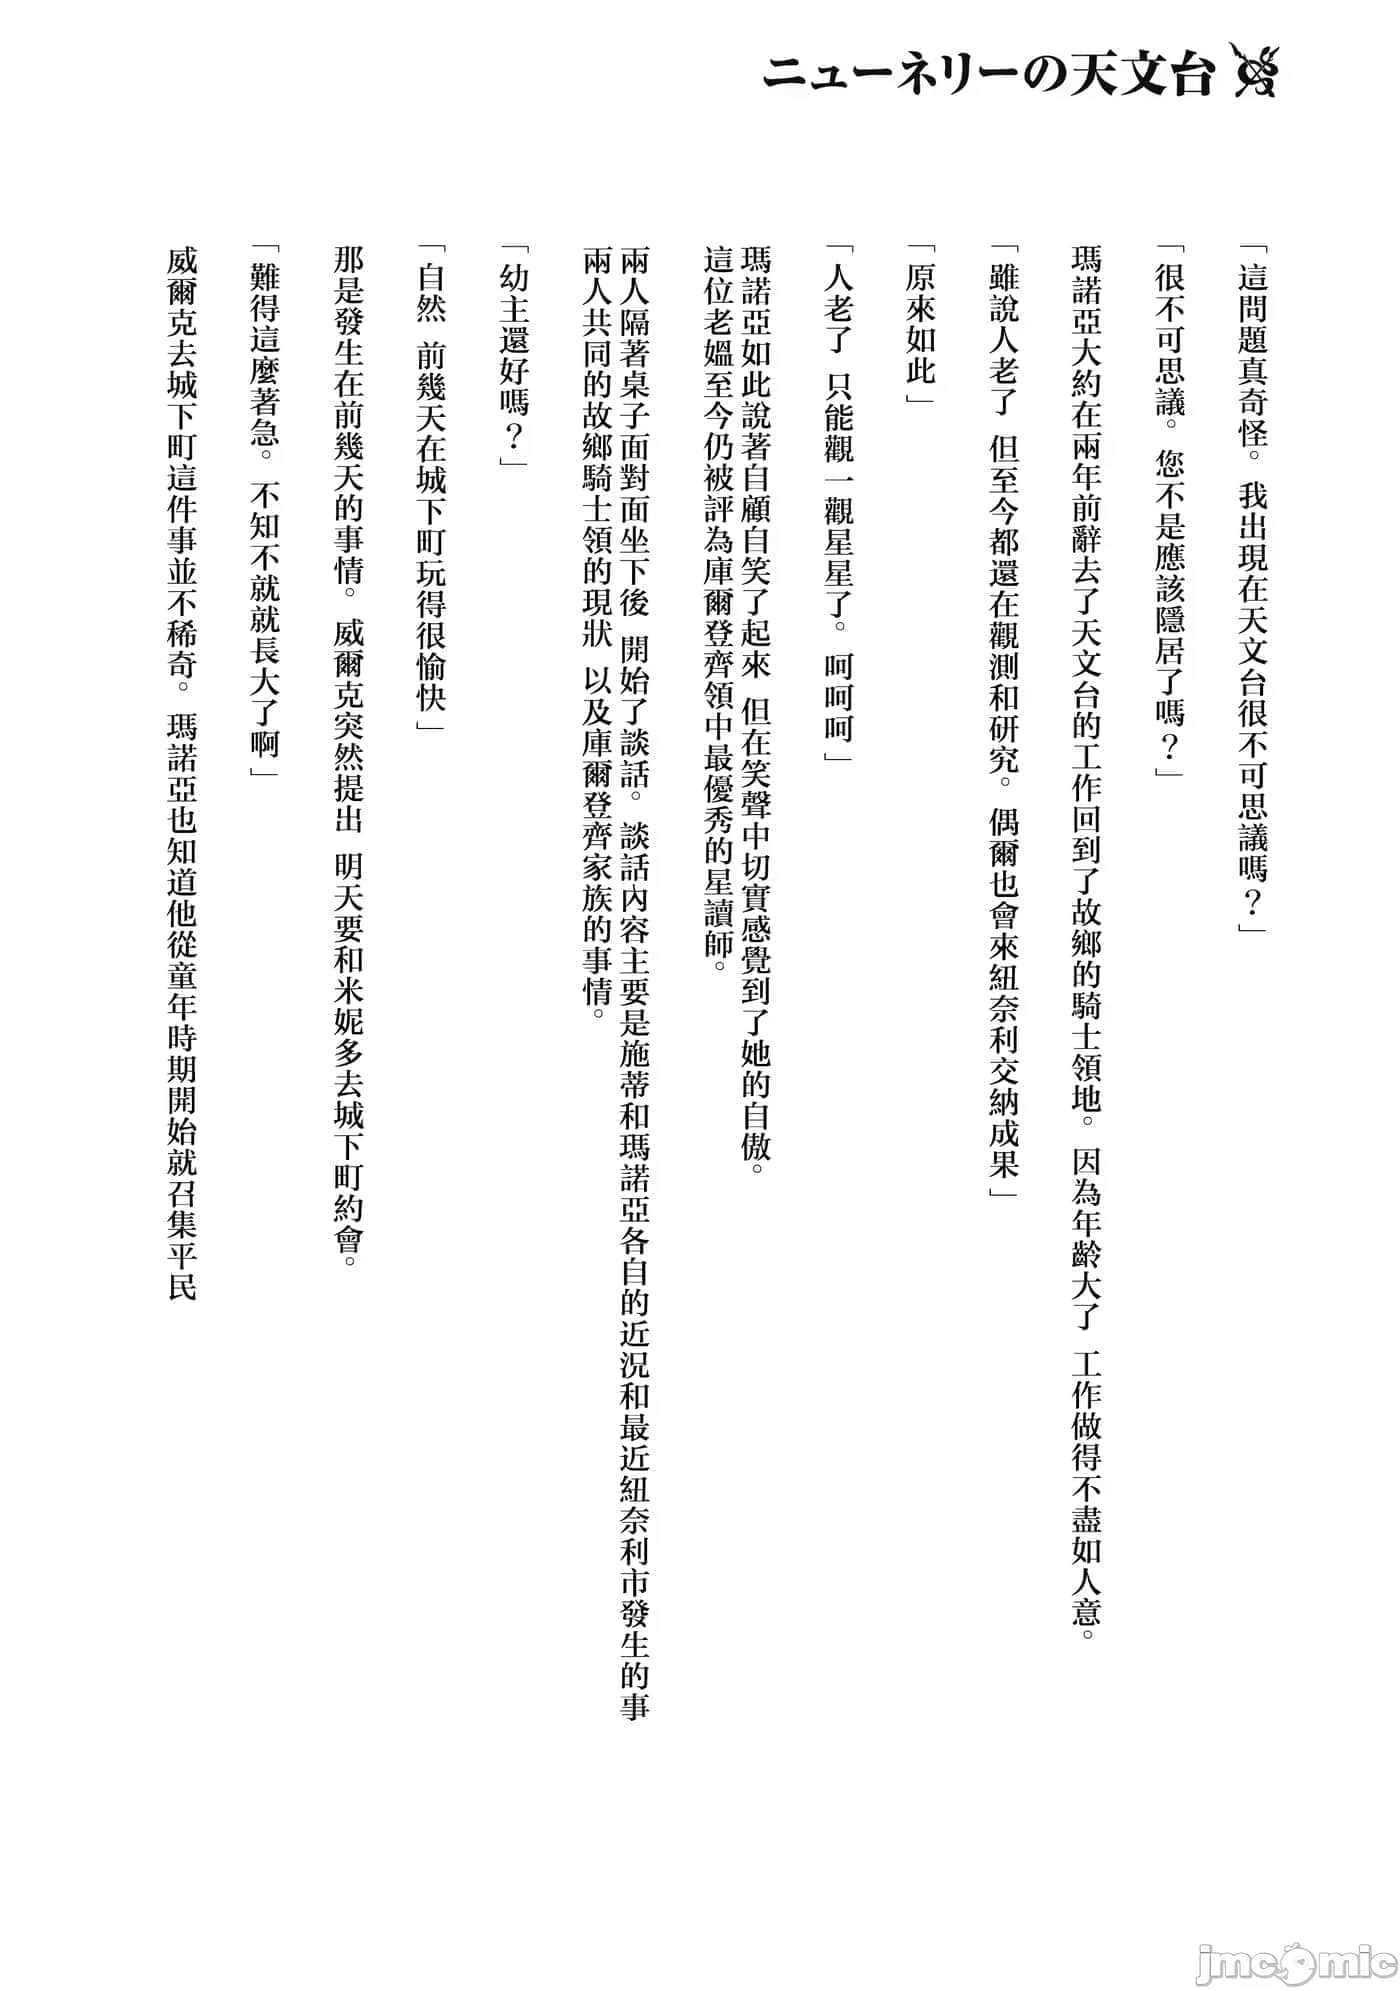 ニューネリーの天文台
「這問題真奇怪。我出現在天文台很不可思議嗎？」
「很不可思議。您不是應該隱居了嗎？」
瑪諾亞大約在兩年前辭去了天文台的工作回到了故鄉的騎士領地。因為年齡大了 工作做得不盡如人意。
「雖說人老了 但至今都還在觀測和研究。偶爾也會來紐奈利交納成果」
「原來如此」
「人老了 只能觀一觀星星了。呵呵呵」
瑪諾亞如此說著自顧自笑了起來 但在笑聲中切實感覺到了她的自傲。
這位老媼至今仍被評為庫爾登齊領中最優秀的星讀師。
兩人隔著桌子面對面坐下後 開始了談話。談話內容主要是施蒂和瑪諾亞各自的近況和最近紐奈利市發生的事
兩人共同的故鄉騎士領的現狀 以及庫爾登齊家族的事情。
「幼主還好嗎？」
「自然 前幾天在城下町玩得很愉快」
那是發生在前幾天的事情。威爾克突然提出 明天要和米妮多去城下町約會。
「難得這麼著急。不知不就就長大了啊」
威爾克去城下町這件事並不稀奇。瑪諾亞也知道他從童年時期開始就召集平民
jmcomic